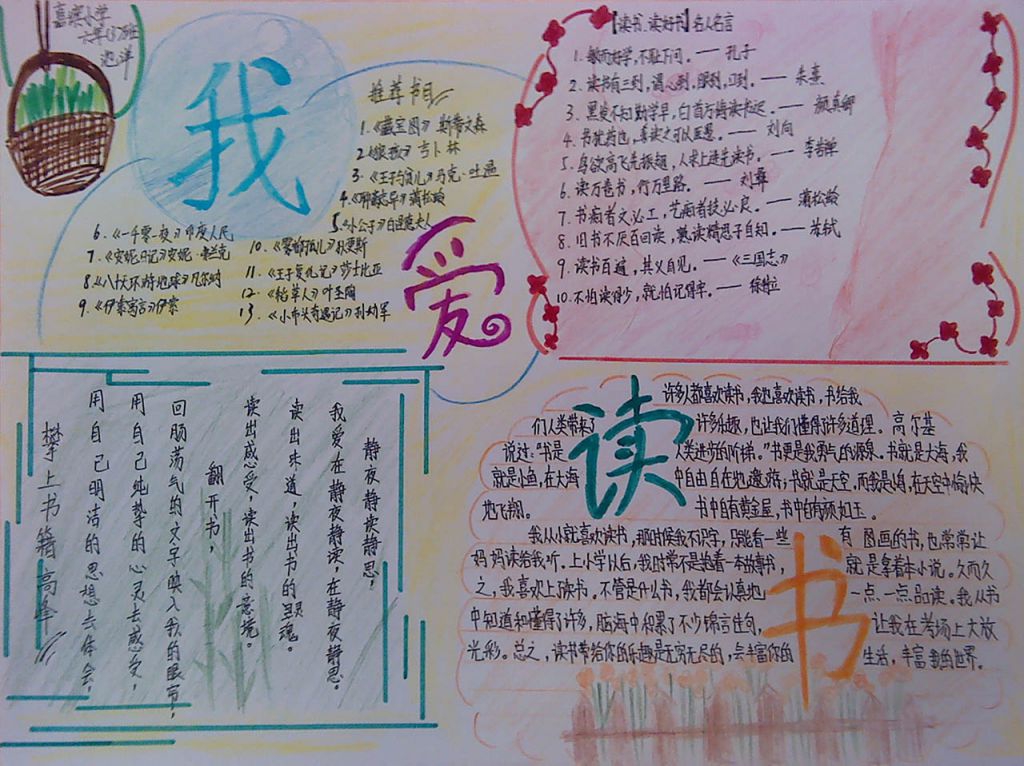 嘉滨小学
六年(3)班
池洋
我
爱
读
书
推荐书目
1.《藏宝图》 斯蒂文森
2.《演孩》 弓卜林
3.《王子与贫儿》马克·吐温
4.《聊斋志异》蒲松龄
5.《小公子》白涅德夫人
6.《一千零一夜》印度人民
7.《安妮日记》安妮·弗兰克
8.《八十天环游地球》凡尔纳
9.《伊索寓言》伊索
10.《雾都孤儿》狄更斯
11.《王子复仇记》莎士比亚
12.《稻草人》叶圣陶
13.《小布头奇遇记》孙幼军
【读书、读好书】名人名言
1. 敏而好学,不耻下问。—— 孔子
2. 读书有三到,谓心到,眼到,口到。—— 朱熹
3. 黑发不知勤学早,白首方悔读书迟。—— 颜真卿
4. 书犹药也,善读之可以医愚。—— 刘向
5. 鸟欲高飞先振翅,人求上进先读书。—— 李苦禅
6. 读万卷书,行万里路。—— 刘彝
7. 书痴者文必工,艺痴者技必良。—— 蒲松龄
8. 旧书不厌百回读,熟读精思子自知。—— 苏轼
9. 读书百遍,其义自见。——《三国志》
10. 不怕读得少,就怕记得牢。—— 徐特立
静夜静读静思,
我爱在静夜静读,在静夜静思。
读出味道,读出书的灵魂。
读出感受,读出书的意境。
翻开书,
回肠荡气的文字映入我的眼帘,
用自己纯挚的心灵去感受,
用自己明洁的思想去体会,
攀上书籍高峰
许多人都喜欢读书,我也喜欢读书,书给我
们人类带来了许多乐趣,也让我们懂得许多道理。高尔基
说过:“书是人类进步的阶梯。”书更是我勇气的源泉。书就是大海,我
就是小鱼,在大海中自由自在地遨游;书就是天空,而我是小鸟,在天空中愉快
地飞翔。书中自有黄金屋,书中自有颜如玉。
我从小就喜欢读书,那时候我不识字,只能看一些有图画的书,也常常让
妈妈读给我听。上小学以后,我时常不是抱着一本故事书,就是拿着本小说。久而久
之,我喜欢上读书。不管是什么书,我都会认真地一点一点品读。我从书
中知道和懂得了许多,脑海中积累了不少锦言佳句,让我在考场上大放
光彩。总之,读书带给你的乐趣是无穷无尽的,会丰富你的生活,丰富我的世界。